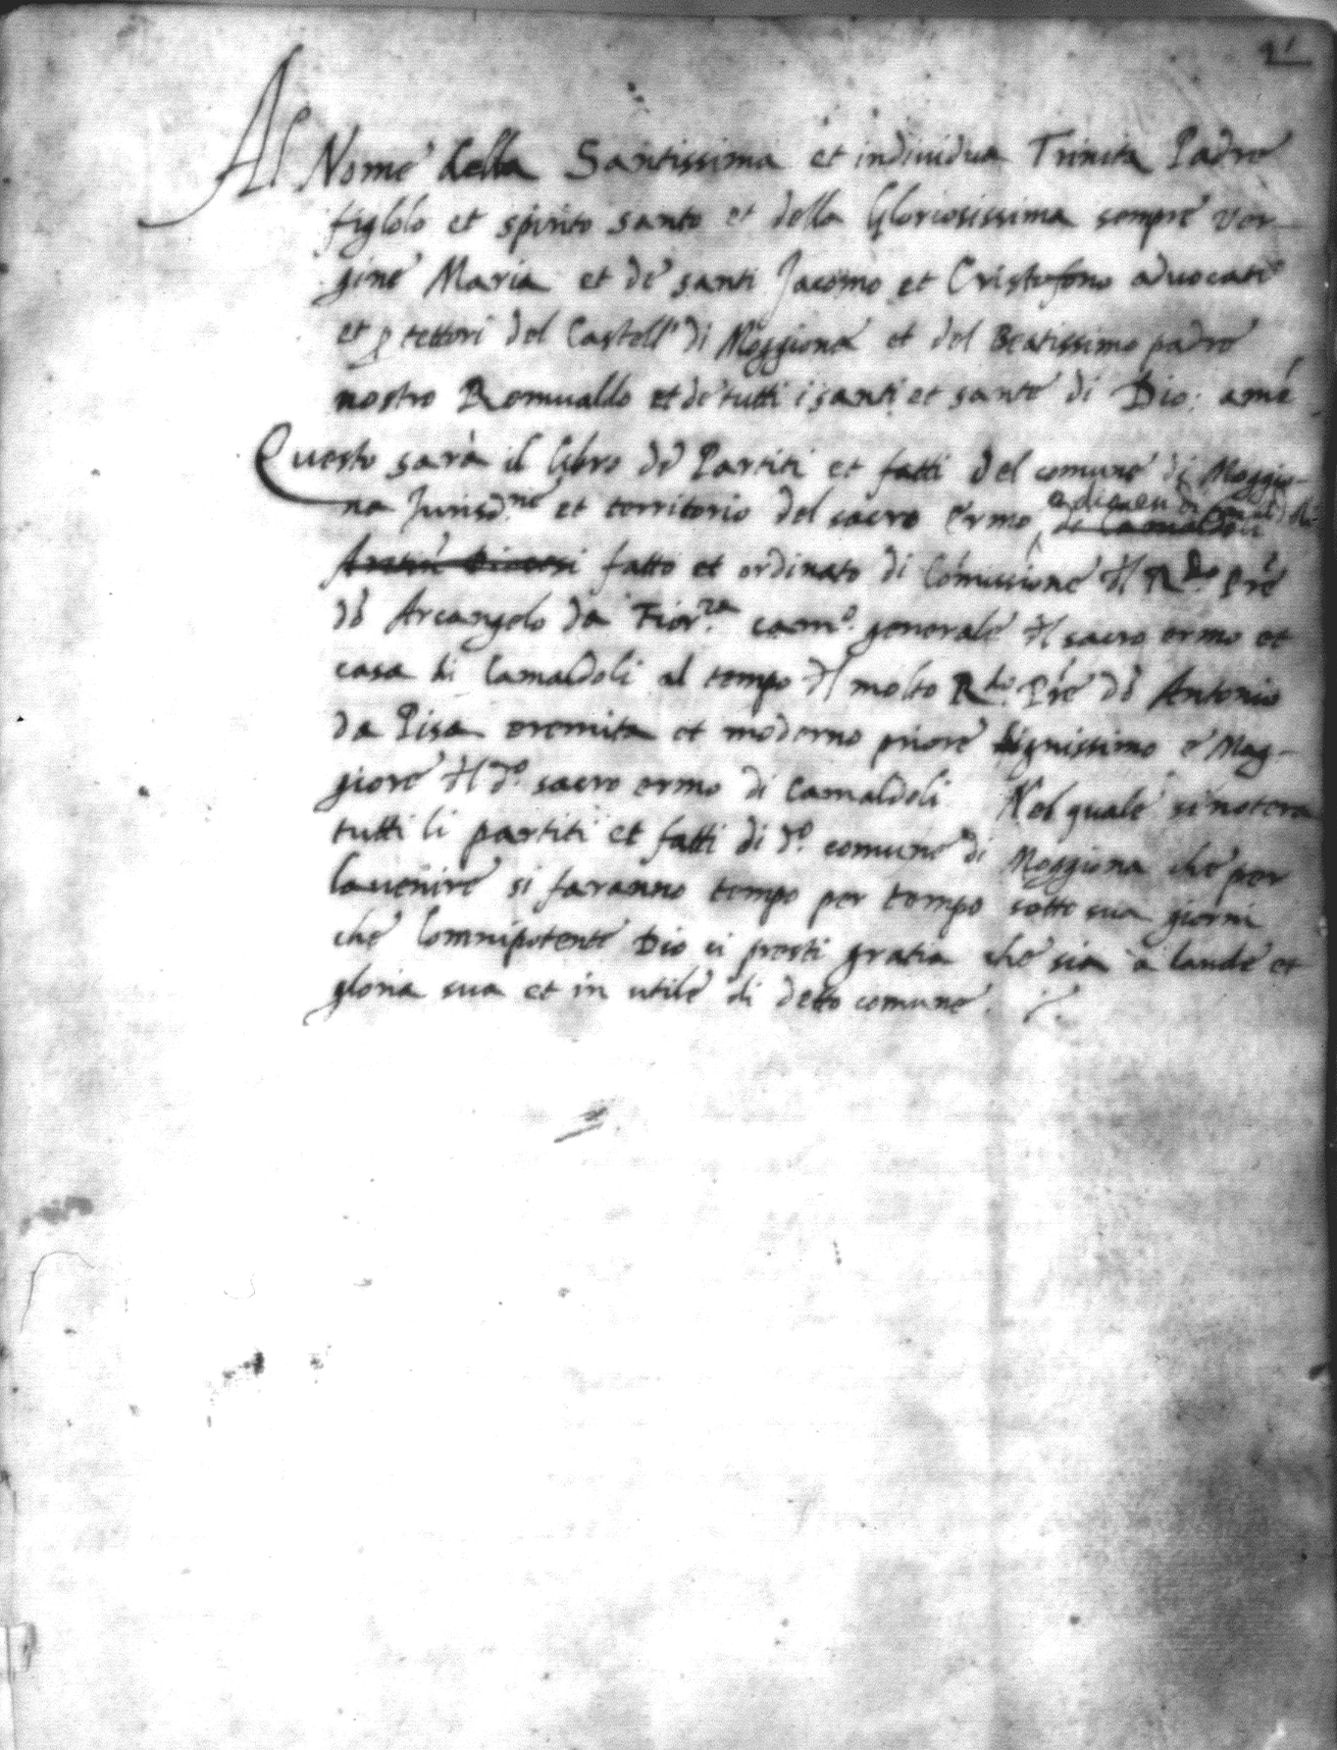 Al Nome della Santissima et individua Trinita Padre
figlolo et spirito santo et della Gloriosissima sempre ver-
gine Maria et de santi Jacomo et Cristofono advocati
et ptettori del Castell° di Moggiona et del Beatissimo padre
nostro Romualdo et de tutti i santi et sante di Dio: amē
Questo sarà il libro de Partiti et fatti del comune di Moggio-
na Jurisd.ne et territorio del sacro Ermo
di Camaldoli
fatto et ordinato di Comissione d'l R.do Prē
dō Arcangelo da Fior.za cam°. generale d'l sacro ermo et
casa di Camaldoli al tempo d'l molto R.do Prē dō Antonio
da Pisa eremita et moderno priore dignissimo e Mag-
giore d'l d°. sacro ermo di Camaldoli Nel quale si notera
tutti li partiti et fatti di d°. comune di Moggiona che per
lavenire si faranno tempo per tempo sotto sua giorni
che lomnipotente Dio ci presti gratia che sia à laude et
gloria sua et in utile di detto comune.